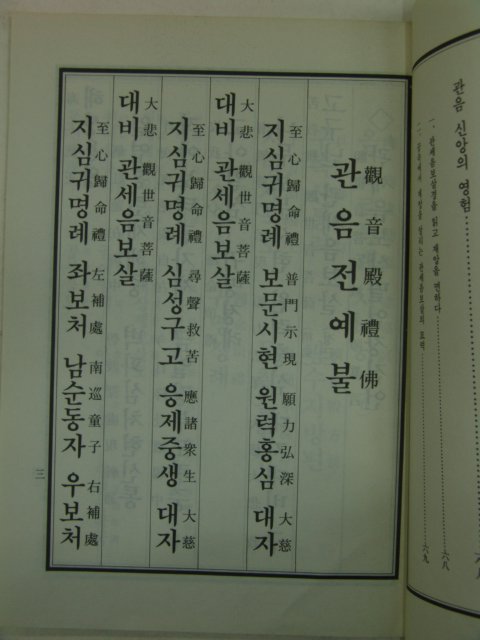 관음 신앙의 영험
一、관세음보살경을 읽고 재앙을 면하다 六八
六九
觀音殿禮佛
관음전예불
至心歸命禮 普門示現 願力弘深 大慈
지심귀명례 보문시현 원력홍심 대자
大悲 觀世音菩薩
대비 관세음보살
至心歸命禮 尋聲救苦 應諸衆生 大慈
지심귀명례 심성구고 응제중생 대자
大悲 觀世音菩薩
대비 관세음보살
至心歸命禮 左補處 南巡童子 右補處
지심귀명례 좌보처 남순동자 우보처
三